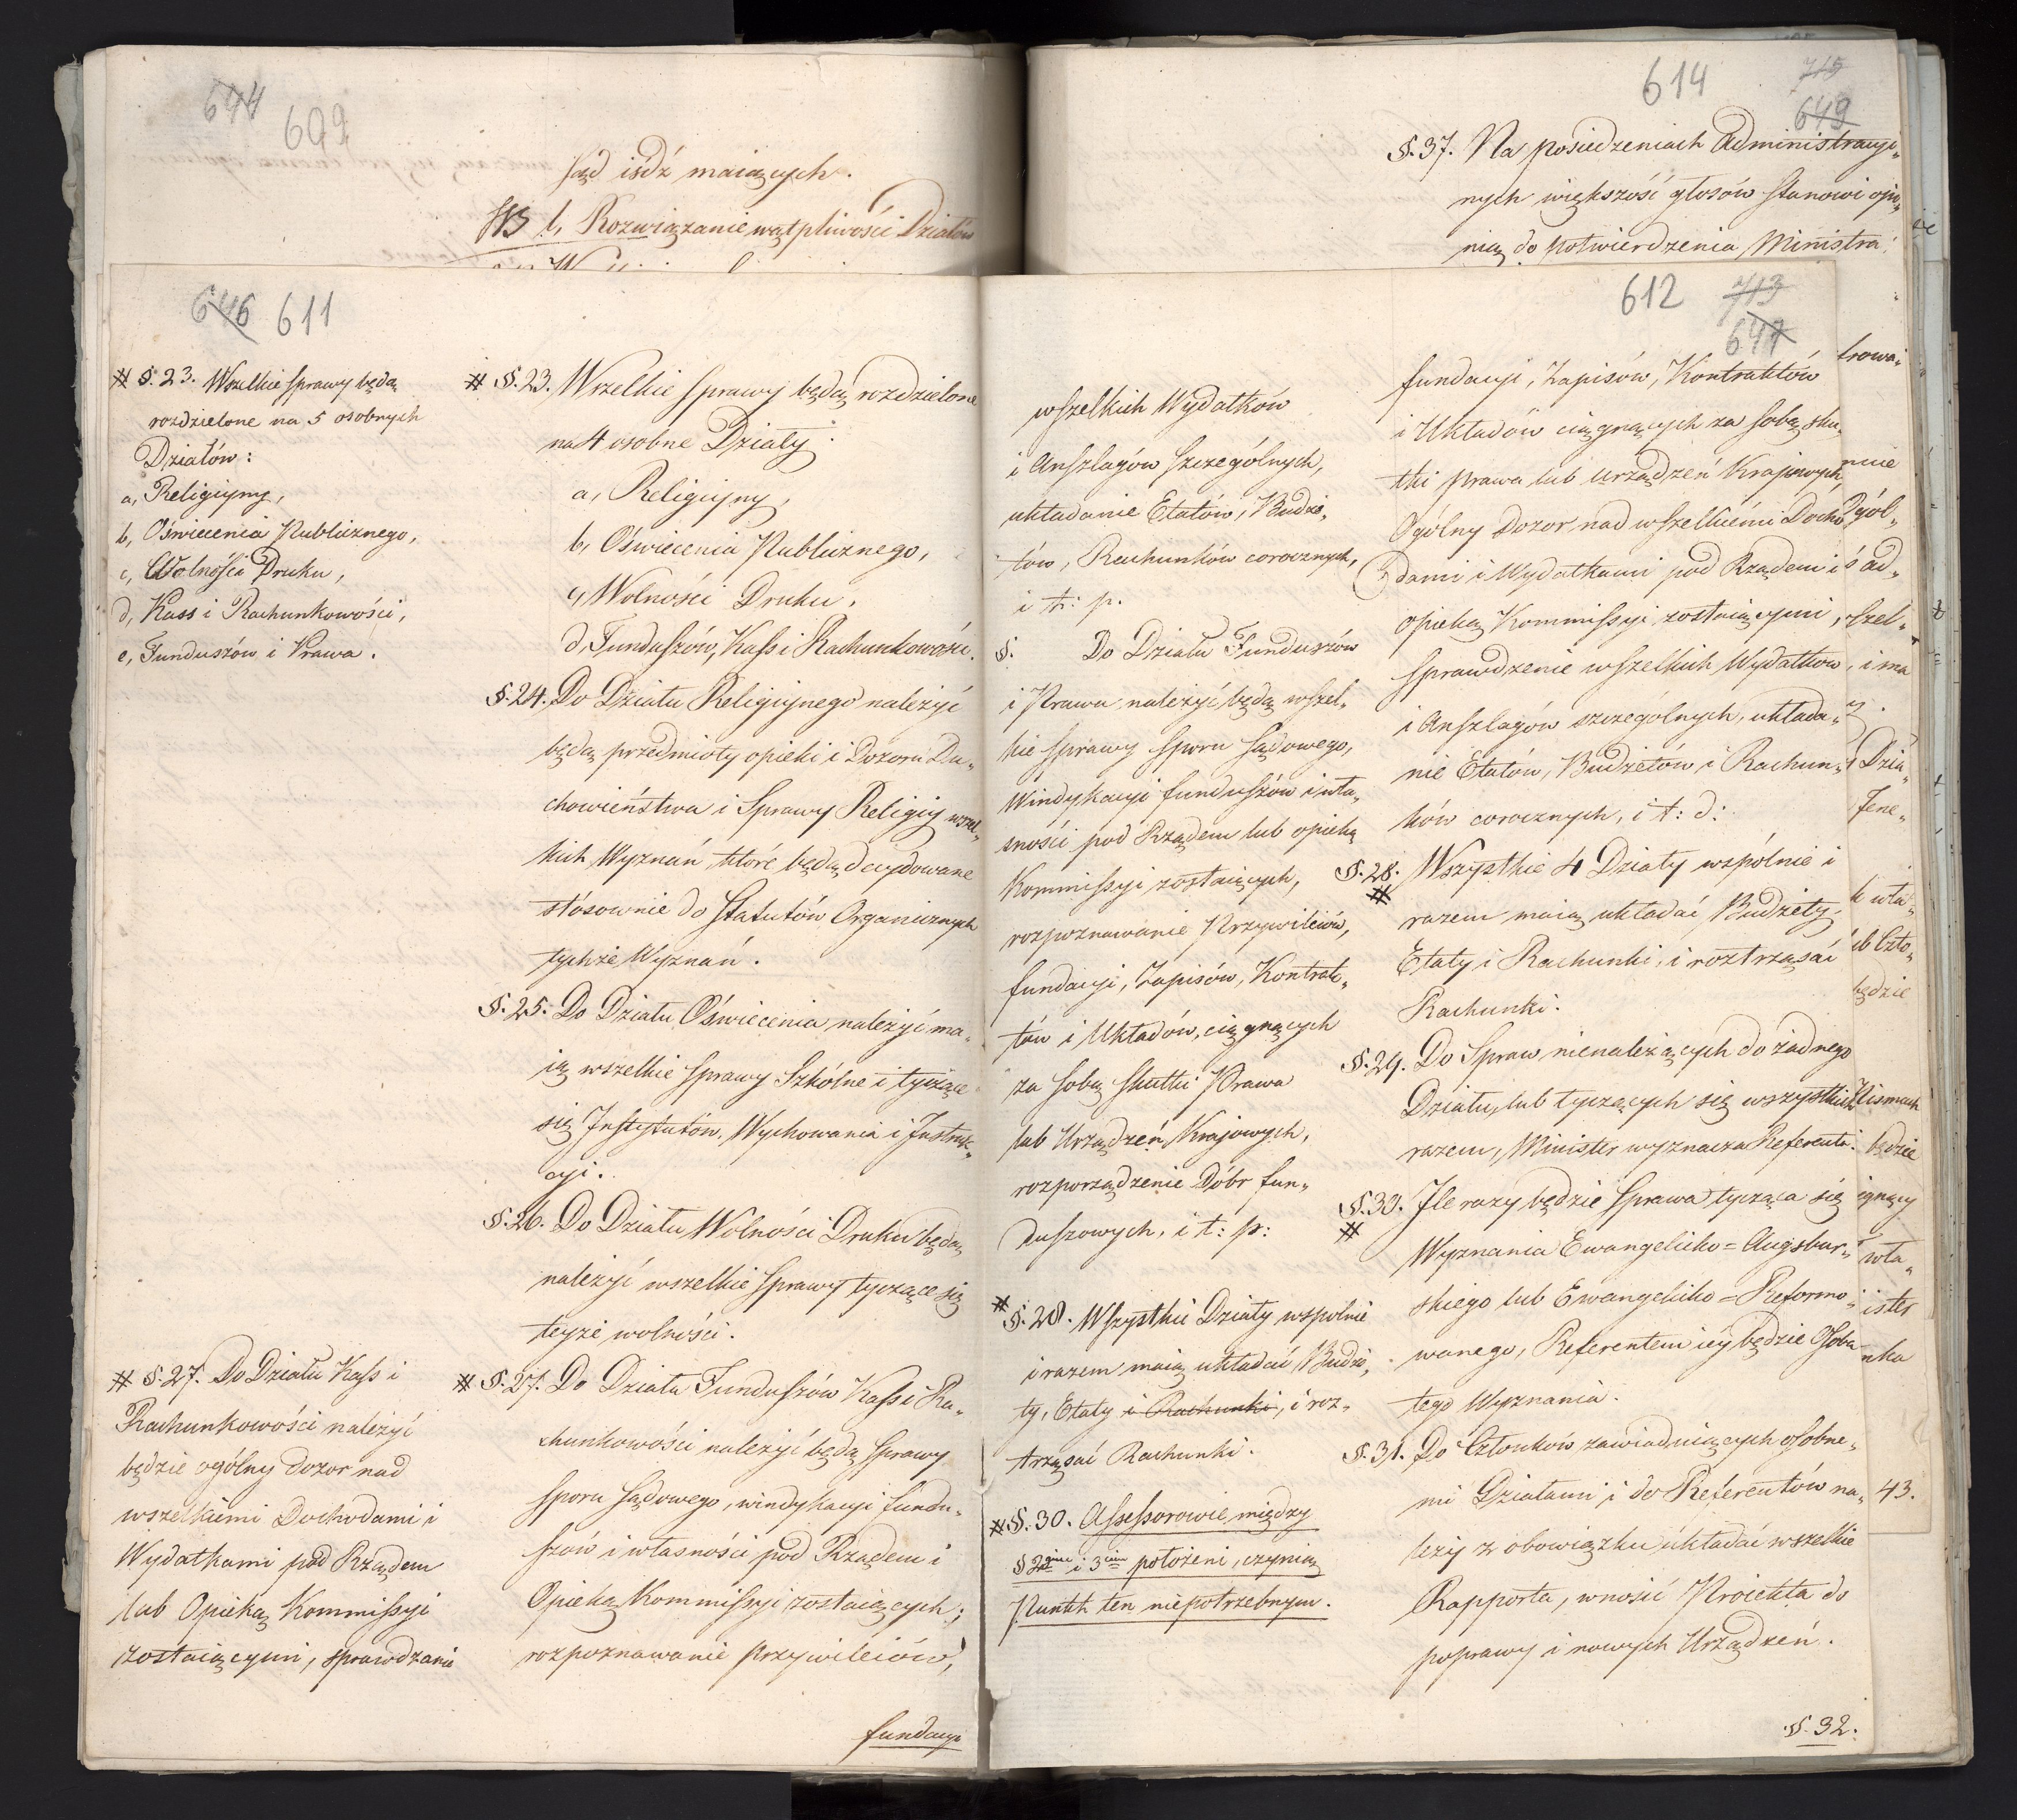 644
609
sąd iśdź maiących.
NB b, Rozwiązanie wątpliwości Działów
614
715
649
§. 37. Na posiedzeniach Administracyi„
nych większość głosów stanowi opi„
nią do potwierdzenia Ministra.
646 611
# §. 23. Wszelkie sprawy będą
rozdzielone na 5 osobnych
Działów:
a, Religijny,
b, Oświecenia Publicznego,
c, Wolności Druku,
d, Kass i Rachunkowości,
e, Funduszów i Prawa.
# §. 27. Do Działu Kass i
Rachunkowości należyć
będzie ogólny dozor nad
wszelkiemi Dochodami i
Wydatkami pod Rządem
lub Opieką Kommissyi
zostaiącymi, sprawdzanie
# §. 23. Wszelkie sprawy będą rozdzielone
na 4 osobne Działy:
a, Religijny,
b, Oświecenia Publicznego,
c, Wolności Druku,
d, Funduszów, Kass i Rachunkowości.
§. 24. Do Działu Religijnego należyć
będą przedmioty opieki i Dozoru Du„
chowieństwa i Sprawy Religiy wszel„
kich Wyznań, które będą decydowane
stósownie do Statutów Organicznych
tychże Wyznań.
§. 25. Do Działu Oświecenia należyć ma„
ią wszelkie sprawy Szkólne i tyczące
się Instytutów, Wychowania i Instruk„
cyi.
§. 26. Do Działu Wolności Druku będą
należyć wszelkie sprawy tyczące się
teyże wolności.
# §. 27. Do Działu Funduszów Kass i Ra„
chunkowości należyć będą sprawy
sporu sądowego, windykacyi fundu„
szów i własności pod Rządem i
Opieką Kommissyi zostaiących;
rozpoznawanie przywileiów,
fundacyi
612 713
647
wszelkich Wydatków
i Anszlagów szczególnych,
układanie Etatów, Budże„
tów, Rachunków corocznych,
i t: p.
§. Do Działu Funduszów
i Prawa należyć będą wszel„
kie sprawy sporu sądowego,
Windykacyi funduszów i wła„
sności pod Rządem lub opieką
Kommissyi zostaiących,
rozpoznawanie Przywileiów,
fundacyi, Zapisów, Kontrak„
tów i Układów, ciągnących
za sobą skutki Prawa
lub Urządzeń Krajowych,
rozporządzenie Dóbr fun„
duszowych, i t: p:
# §. 28. Wszystkie Działy wspólnie
i razem maią układać Budże„
ty, Etaty i Rachunki, i roz„
trząsać Rachunki.
# §. 30. Assessorowie między
§ 2gim i 3cim położeni, czynią
Punkt ten niepotrzebnym.
fundacyi, Zapisów, Kontraktów
i Układów ciągnących za sobą sku„
tki prawa lub urządzeń Krajowych,
Ogólny Dozor nad wszelkiémi Docho„
dami i Wydatkami pod Rządem i
opieką Kommissyi zostaiącymi,
sprawdzenie wszelkich Wydatkow
i Anszlagów szczególnych, układa„
nie Etatów, Budżetów i Rachun„
ków corocznych, i t: d:
§. 28. Wszystkie 4 Działy wspólnie i
# razem maią układać Budżety,
Etaty i Rachunki, i roztrząsać
Rachunki.
§. 29. Do Spraw nienależących do żadnego
Działu, lub tyczących się wszystkich
razem, Minister wyznacza Referenta.
§. 30. Ile razy będzie sprawa tycząca się
# Wyznania Ewangelicko=Augsbur„
skiego lub Ewangelicko=Reformo„
wanego, Referentem iéy będzie Osoba
tego Wyznania.
§. 31. Do Członków zawiaduiących osobne„
mi Działami i do Referentów na„
leży z obowiązku układać wszelkie
Rapporta, wnosić Proiekta do
poprawy i nowych Urządzeń.
§. 32.
trowa„
gól„
ś ad„
szel„
i ma
Dzia„
Jene„
k wła„
ub Czło„
będzie
Pismach
będzie
ignący
wła„
ister
nka
43.